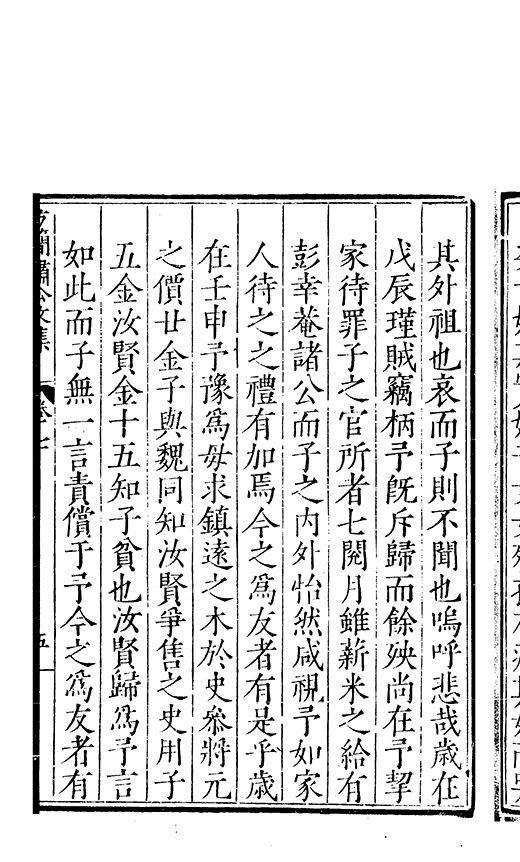 其外祖也哀而子則不聞也嗚呼悲哉歲在
戊辰瑾賊竊柄予旣斥歸而餘殃尚在予挈
家待罪子之官所者七閱月雖薪米之給有
彭幸菴諸公而子之内外怡然咸視予如家
人待之之禮有加焉今之爲友者有是乎歲
在壬申予豫爲母求鎮遠之木於史叅將元
之價廿金子與魏同知汝賢爭售之史用子
五金汝賢金十五知子貧也汝賢歸爲予言
如此而子無一言責償于予今之爲友者有
簡肅公文集
卷十
五